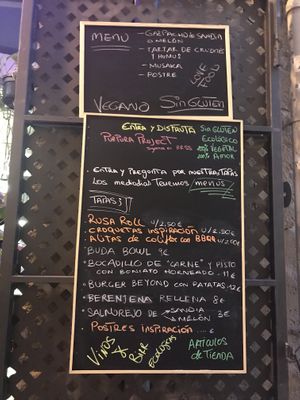 MENÚ - GAZPACHO DE SANDIA
o MELÓN
- TARTAR DE
Y HUMUS
- MUSAKA
- POSTRE
LOVE
FOOD
VEGANO SIN GLUTEN
ENTRA Y DISFRUTA
PÚRPURA PROJECT
RRSS
SIN GLUTEN
ECOLÓGICO
100% VEGETAL
200% AMOR
- ENTRA Y PREGUNTA POR NUESTRAS TAPAS
LOS MEDIODIAS TENEMOS MENÚS
TAPAS
RUSA ROLL U/2.50€
CROQUETAS INSPIRACIÓN U/2.50€
ALITAS DE COLIFLOR CON BBQ
- BUDA BOWL 9€
- BOCADILLO DE "CARNE" Y PISTO
CON BONIATO HORNEADO - 11€
- BURGER BEYOND CON PATATAS - 12€
- BERENJENA RELLENA 8€
- SALMOREJO DE SANDIA
MELÓN 3€
- POSTRES INSPIRACIÓN .... €
VINOS
&
BIER
ECOLOGICOS
ARTICULOS
DE TIENDA